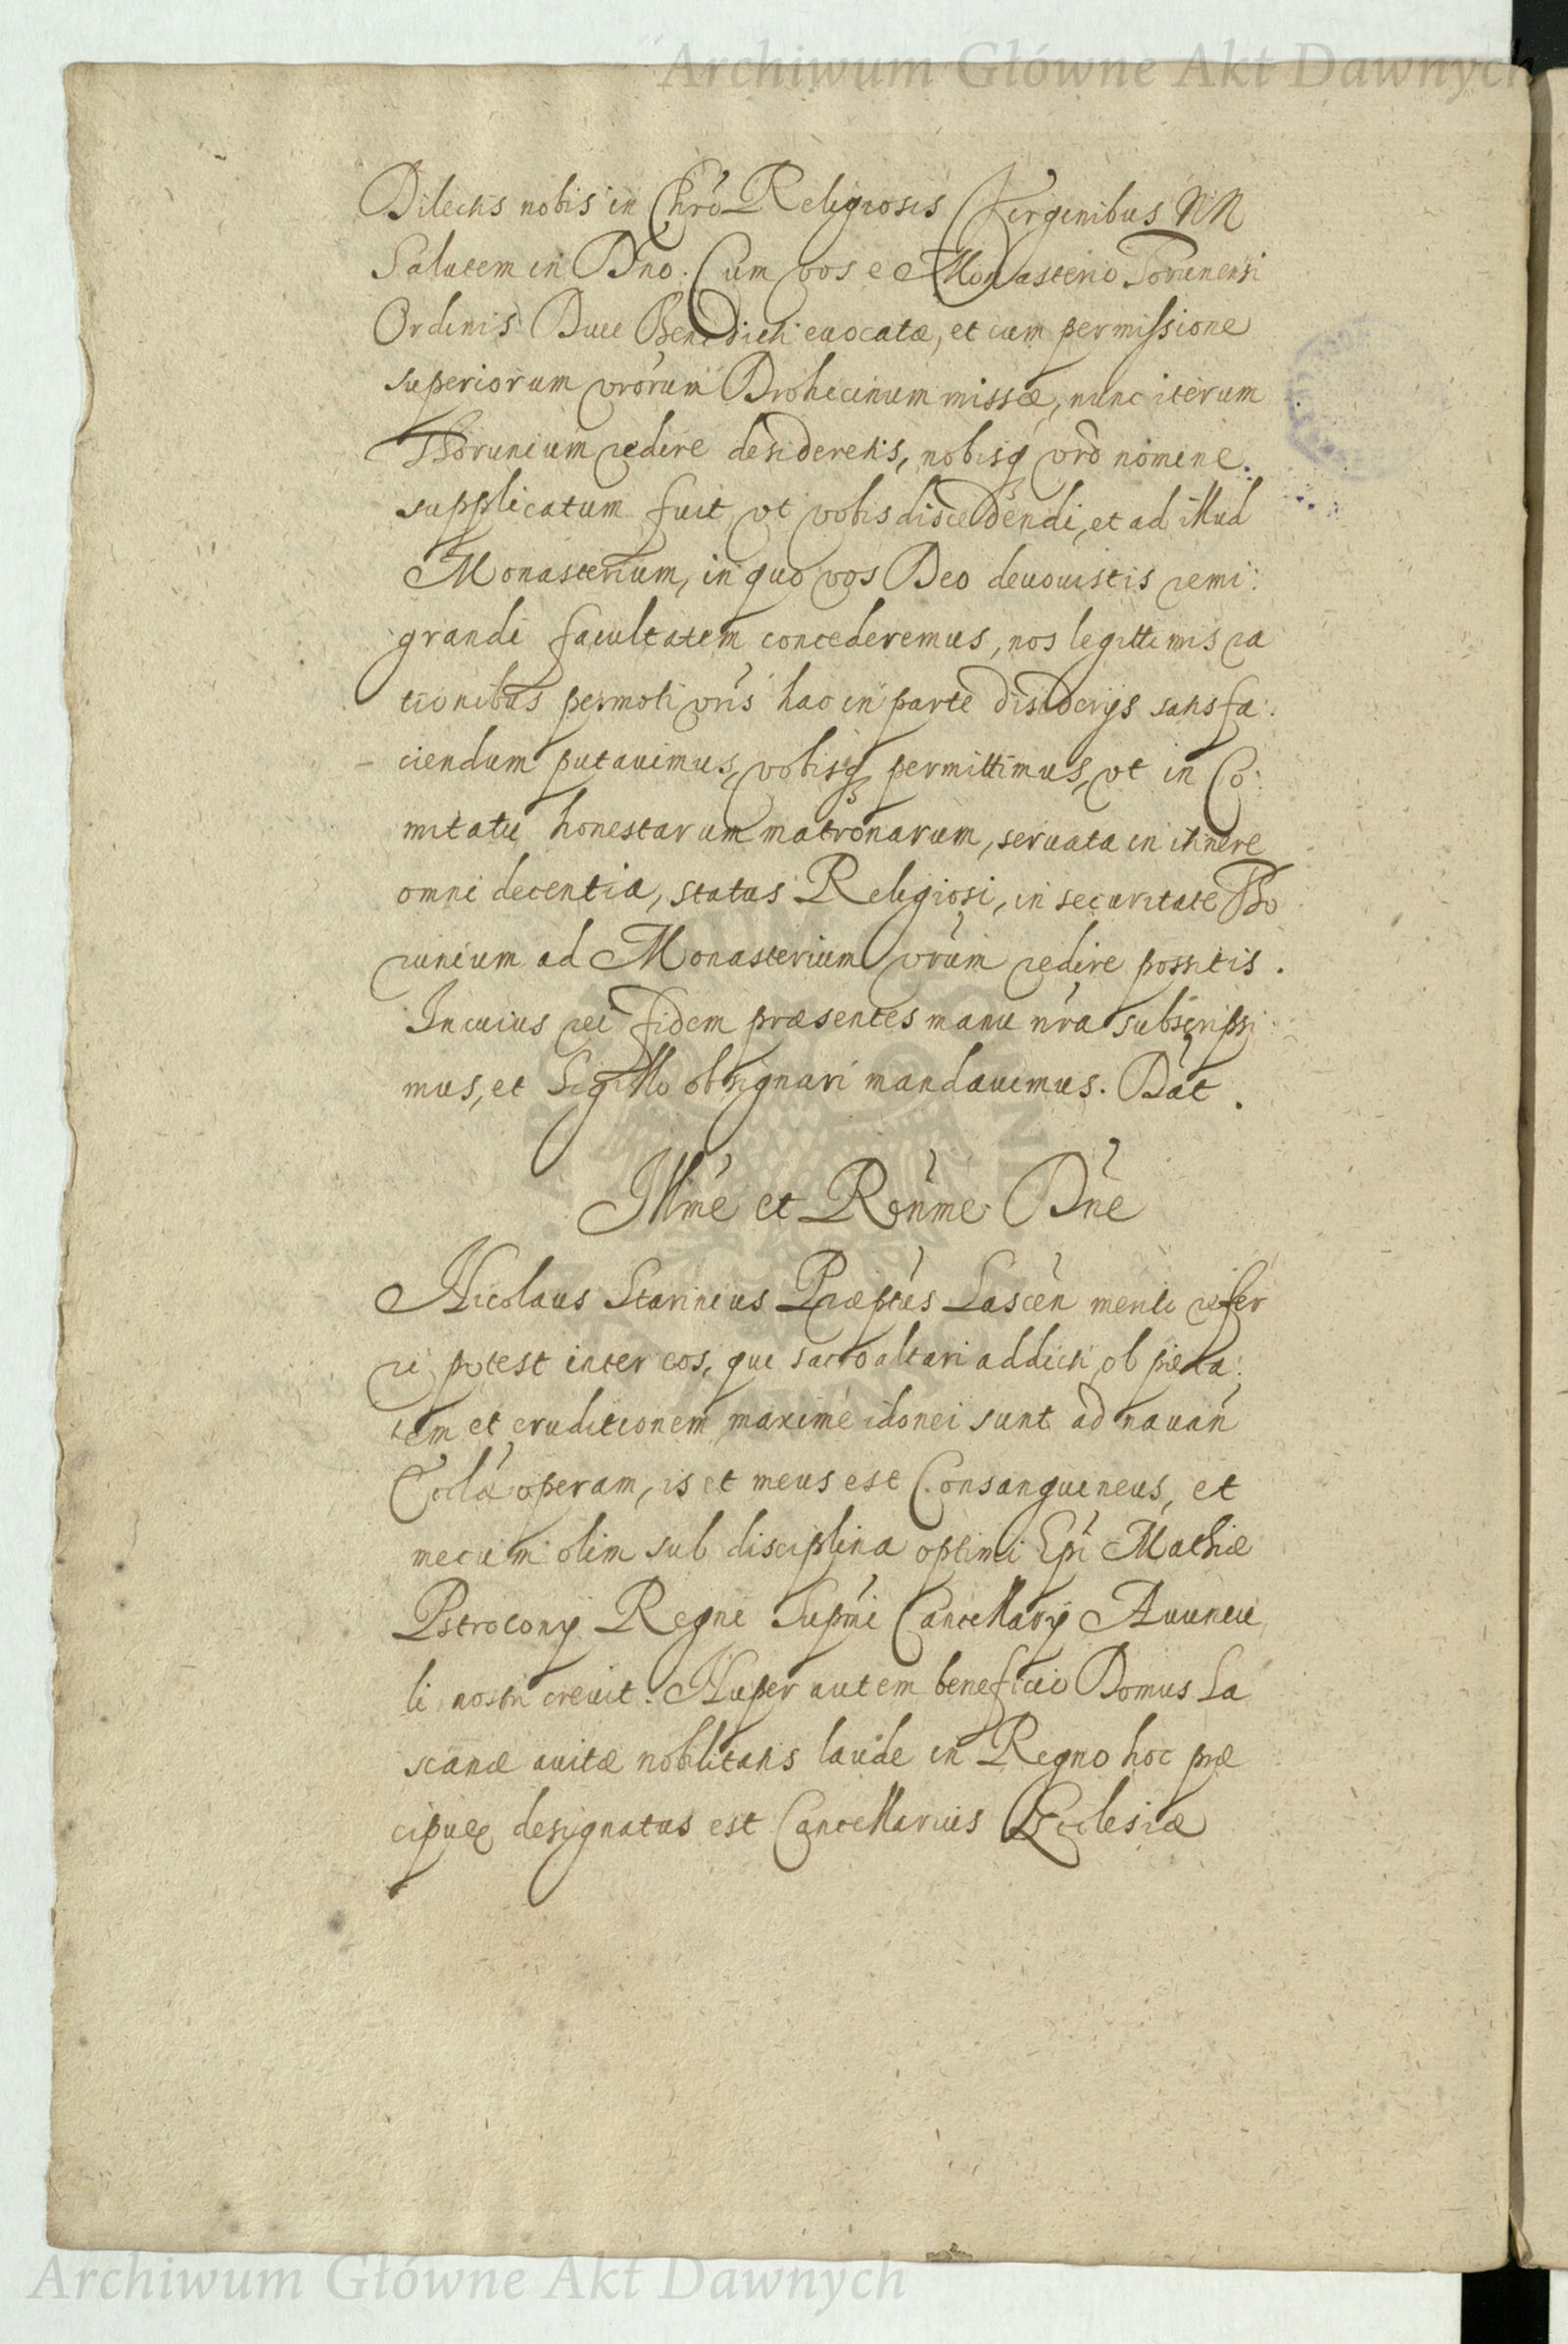 Archiwum Główne Akt Dawnych
Dilectis nobis in Chrō Religiosis Virginibus NN
Salutem in Dno. Cum vos e Monasterio Torunensi
Ordinis Diui Benedicti euocatæ, et cum permissione
superiorum vrōrum Drohicinum missæ, nunc iterum
Thorunium redire desideretis, nobisq vrō nomine
supplicatum fuit vt vobis discedendi, et ad illud
Monasterium, in quo vos Deo deuouistis remi:
grandi facultatem concederemus, nos legittimis ra
tionibus permoti vrīs hac in parte disiderijs satisfa:
ciendum putauimus, vobisq permittimus, vt in Co:
mitatu honestarum matronarum, seruata in itinere
omni decentia, status Religiosi, in securitate Tho
runium ad Monasterium vrūm redire possitis.
In cuius rei fidem præsentes manu nrā subscripsi:
mus, et Sigillo obsignari mandauimus. Dat.
Illmē et Rōnme Dnē
Nicolaus Starinius Præptūs Lascēn merito refer
ri potest inter eos, qui sacro altari addicti ob pieta:
tem et eruditionem maxime idonei sunt ad nauān
Ecclæ operam, is et meus est Consanguineus, et
mecum olim sub disciplina optimi Epī Mathiæ
Pstrocony Regni Supmī Cancellarij Auuncu
li nostri creuit. Nuper autem beneficio Domus La
scanæ auitæ nobilitatis laude in Regno hoc præ
cipuæ designatus est Cancellarius Ecclesiæ
Archiwum Główne Akt Dawnych